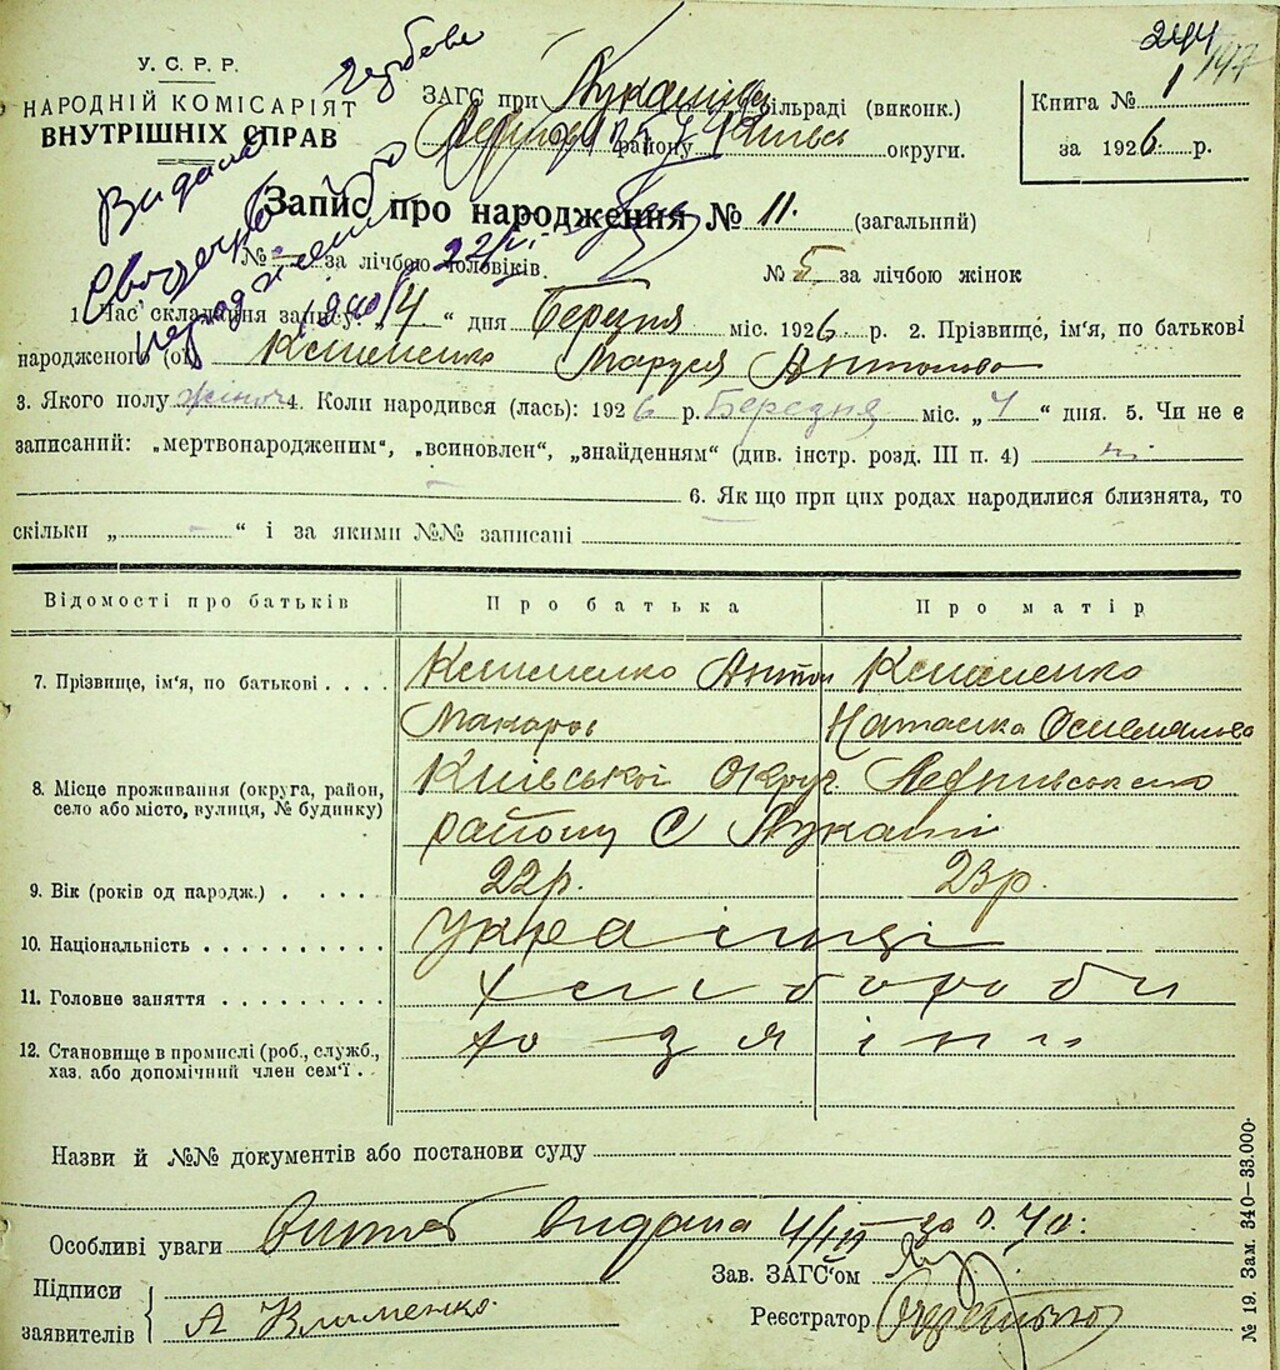 244
197
У. С. Р. Р.
НАРОДНІЙ КОМІСАРІЯТ
ВНУТРІШНІХ СПРАВ
ЗАГС при сільраді (виконк.)
району округи.
Книга № 1
за 1926 р.
Видано
Запис про народження № 11. (загальний)
№ - за лічбою чоловіків.
№ 5 за лічбою жінок
1. Час складання запису: „4“ дня Березня міс. 1926 р. 2. Прізвище, ім'я, по батькові
народженого (ої) Клименко Маруся Антонова
3. Якого полу жіноч 4. Коли народився (лась): 1926 р. Березня міс. „4“ дня. 5. Чи не є
записаний: „мертвонародженим“, „всиновлен“, „знайденням“ (див. інстр. розд. III п. 4) ні
6. Як що при цих родах народилися близнята, то
скільки „ - “ і за якими №№ записані
Відомості про батьків Про батька Про матір
7. Прізвище, ім'я, по батькові . . . . Клименко Антон Клименко
Макаров Наталка
8. Місце проживання (округа, район, Київської Округ.
село або місто, вулиця, № будинку) району С Лукаші
9. Вік (років од народж.) . . . . . 22р. 23р.
10. Національність . . . . . . . . . . Українці
11. Головне заняття . . . . . . . . . Хлібороби
12. Становище в промислі (роб., служб., хозяіни
хаз. або допомічний член сем'ї . .
Назви й №№ документів або постанови суду
Особливі уваги видана 4/III за
Підписи
заявителів А Клименко.
Зав. ЗАГС'ом
Реєстратор
№ 19. Зам. 340—33.000.